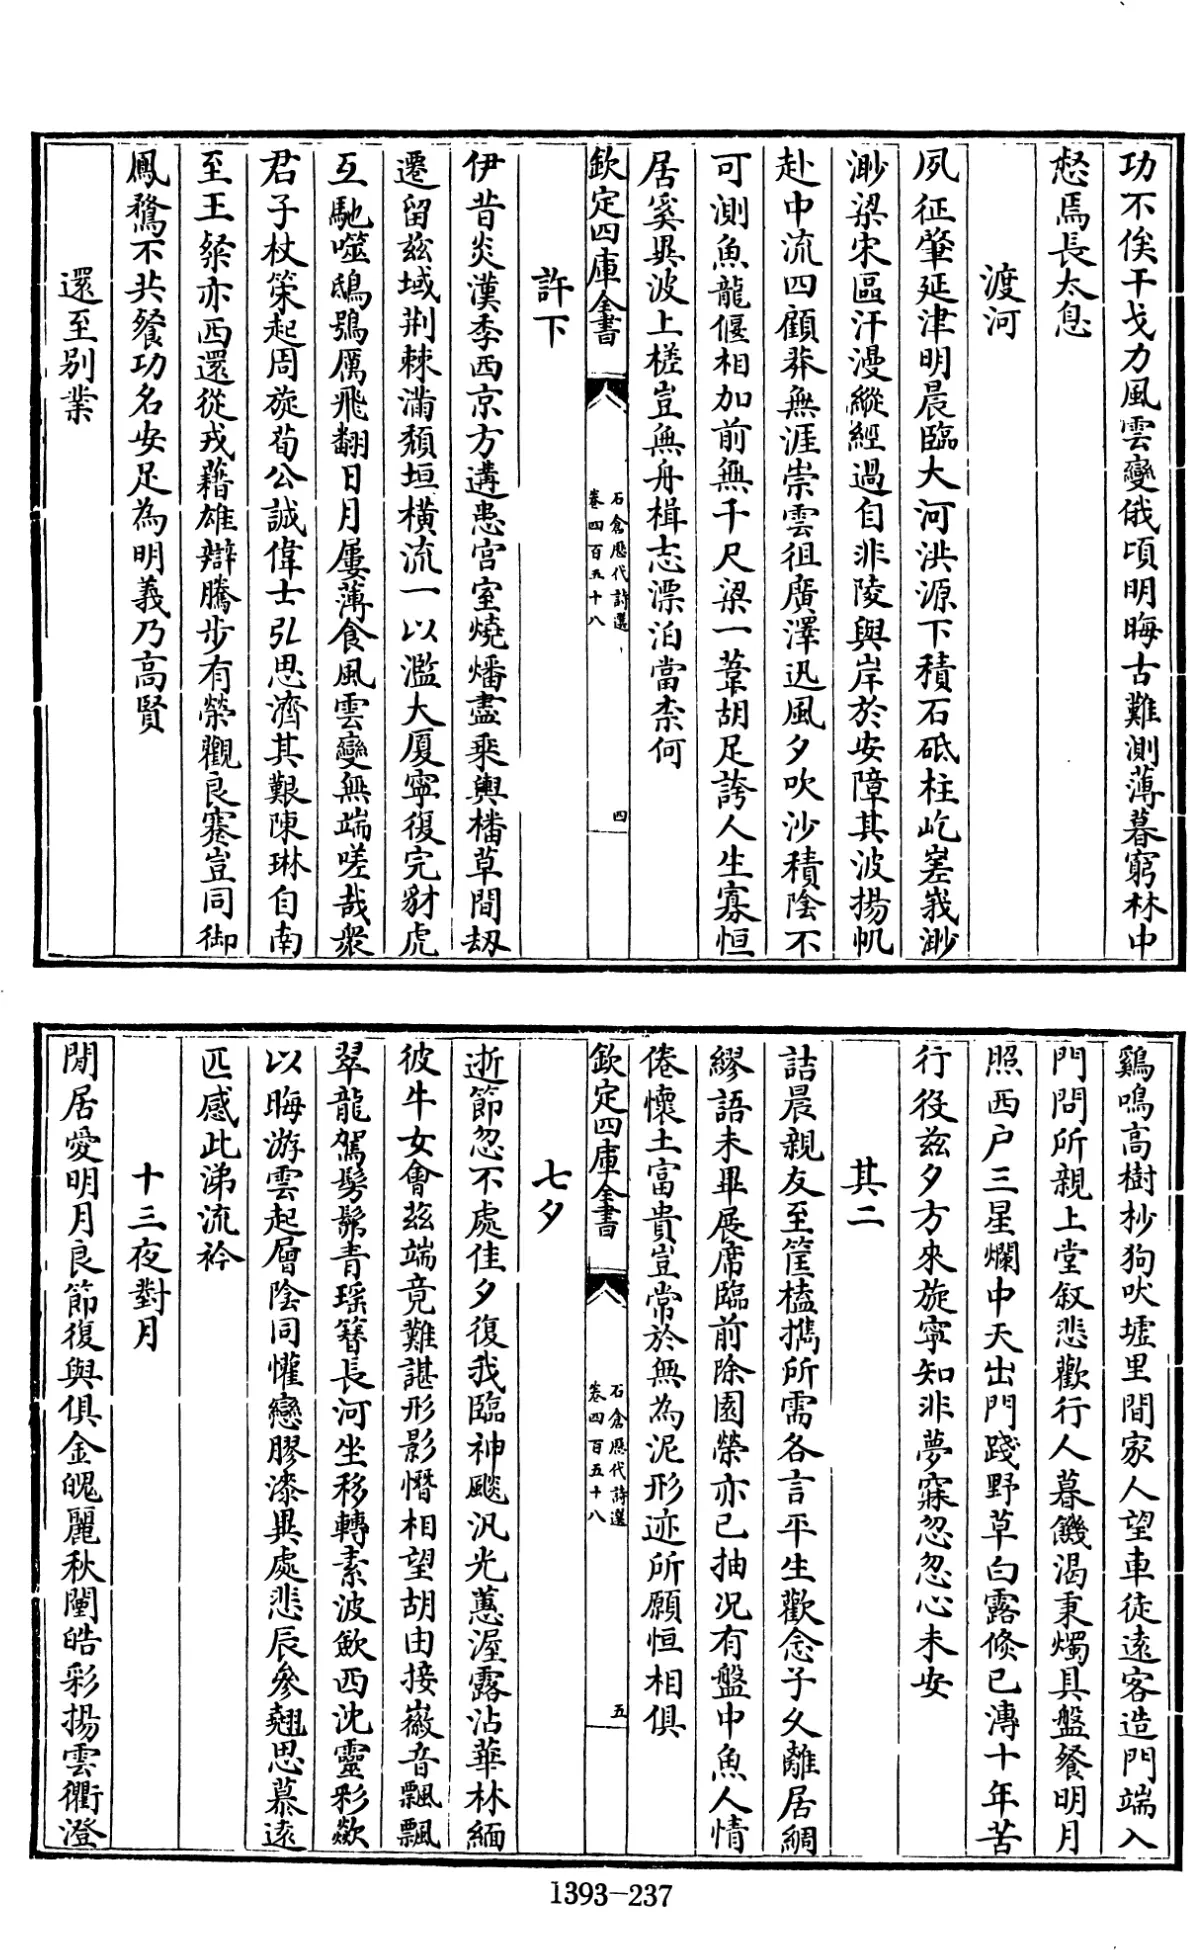 功不俟干戈力風雲變俄頃明晦古難測薄暮窮林中
愁焉長太息
渡河
夙征肇延津明晨臨大河洪源下積石砥柱屹嵳峩渺
渺梁宋區汗漫縱經過自非陵與岸於安障其波揚帆
赴中流四顧莽無涯崇雲徂廣澤迅風夕吹沙積陰不
可測魚龍偃相加前無千尺梁一葦胡足誇人生寡恒
居奚異波上槎豈無舟楫志漂泊當柰何
欽定四庫全書
石倉歷代詩選
卷四百五十八
四
許下
伊昔炎漢季西京方遘患宮室燒燔盡乘輿播草間刼
遷留兹域荆棘滿頽垣橫流一以濫大厦寧復完豺虎
互馳噬鴟鴞厲飛翻日月屢薄食風雲變無端嗟哉衆
君子杖策起周旋荀公誠偉士弘思濟其艱陳琳自南
至王粲亦西還從戎藉雄辯騰步有榮觀良蹇豈同御
鳳鶩不共餐功名安足為明義乃高賢
還至别業
鷄鳴高樹杪狗吠墟里間家人望車徒遠客造門端入
門問所親上堂叙悲歡行人暮饑渴秉燭具盤餐明月
照西户三星爛中天出門踐野草白露倐已漙十年苦
行役兹夕方來旋寧知非夢寐忽忽心未安
其二
詰晨親友至筐榼擕所需各言平生歡念子久離居綢
繆語未畢展席臨前除園榮亦已抽况有盤中魚人情
倦懷土富貴豈常於無為泥形迹所願恒相俱
欽定四庫全書
石倉歷代詩選
卷四百五十八
五
七夕
逝節忽不處佳夕復我臨神飈汎光蕙渥露沾華林緬
彼牛女會兹端竟難諶形影憯相望胡由接徽音飄飄
翠龍駕髣髴青瑶簪長河坐移轉素波歛西沈靈彩歘
以晦游雲起層陰同懽戀膠漆異處悲辰參翹思慕遠
匹感此涕流衿
十三夜對月
閒居愛明月良節復與俱金魄麗秋闈皓彩揚雲衢澄
1393-237